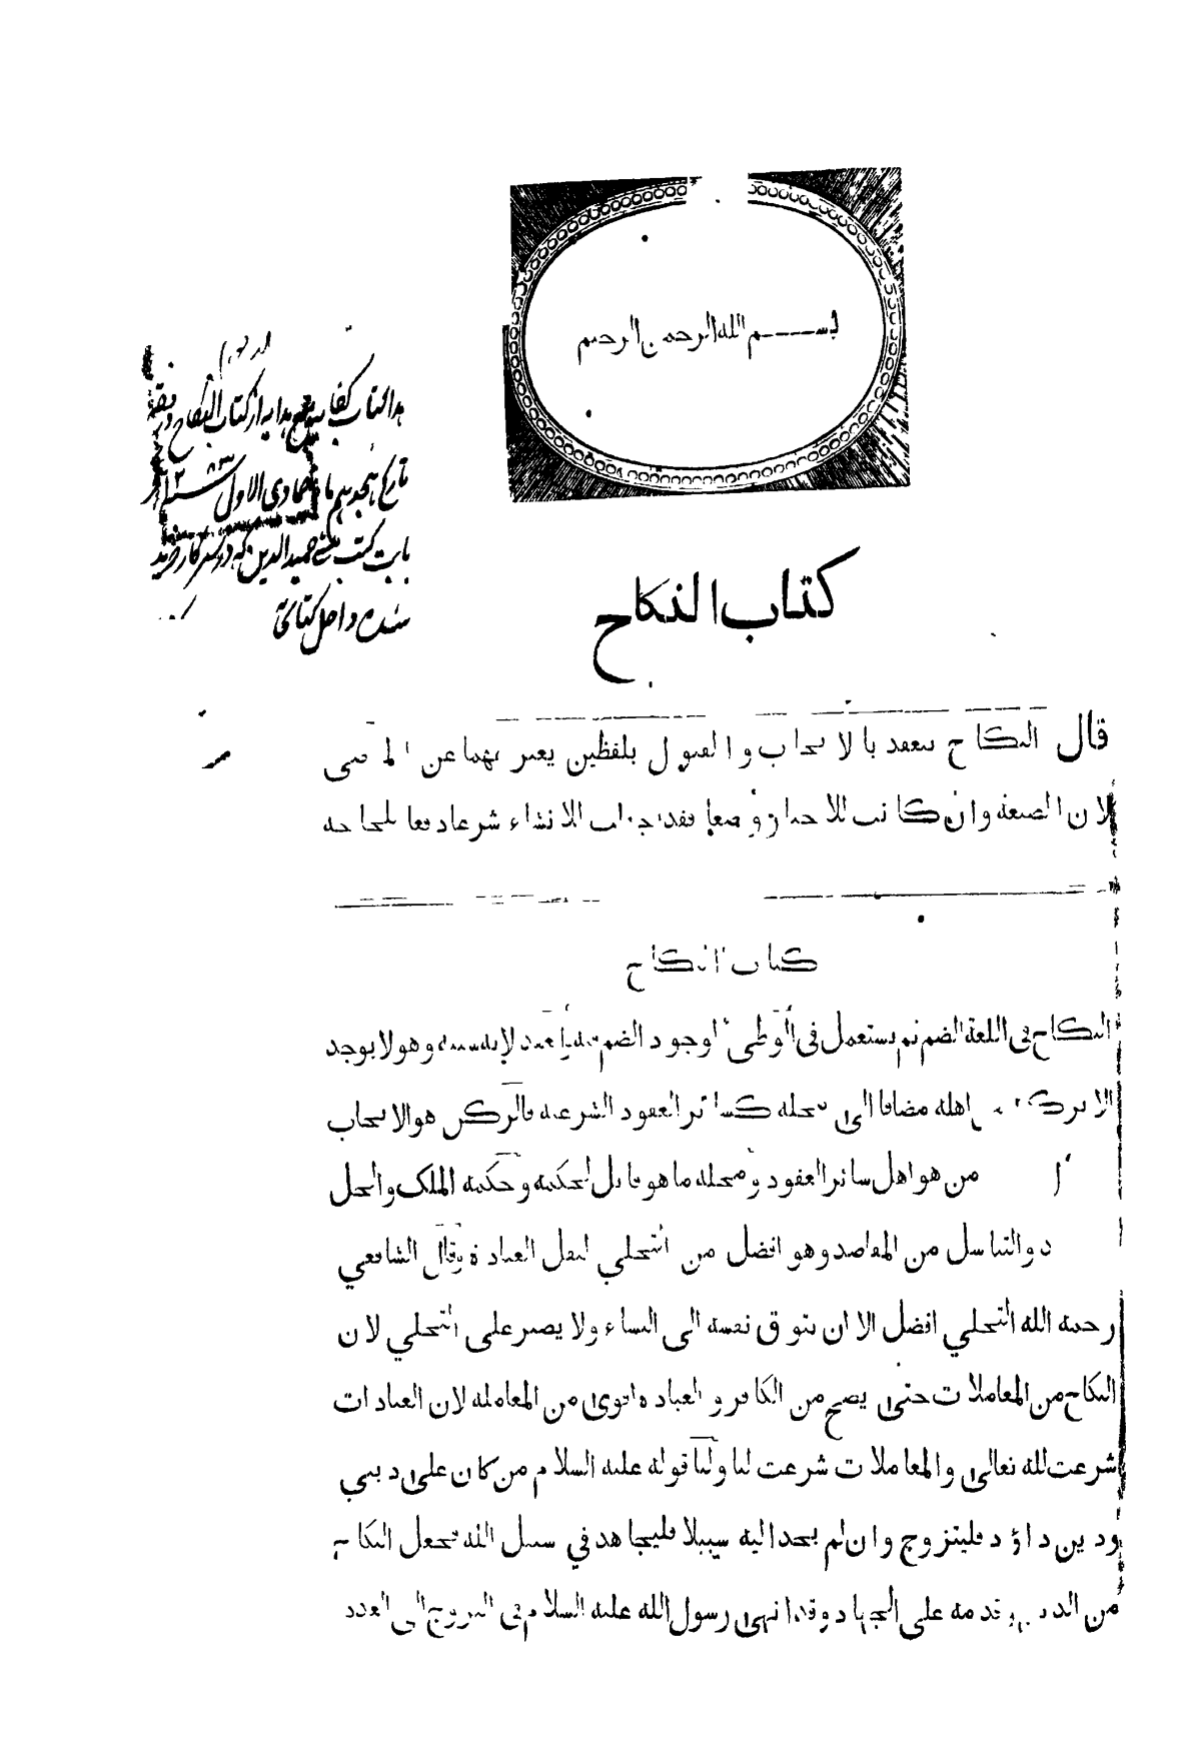 بســـم الله الرحمن الرحيم
هذا الكتاب كفايه شرح هدايه از كتاب النكاح در فقه
تاريخ هجدهم ماه جمادى الاول سنه ١٢٨٣
بابت كتب حميد الدين كه در سركار خريد
شده داخل كتابخانه
كتاب النكاح
قال النكاح ينعقد بالايجاب والقبول بلفظين يعبر بهما عن الماضى
لان الصيغة وان كانت للاخبار وضعا فقد جعلت للانشاء شرعا دفعا للحاجة
كتاب النكاح
النكاح فى اللغة الضم ثم يستعمل فى الوطى لوجود الضم وهو لا يوجد
الا بركنه اهله مضافا الى محله كسائر العقود الشرعية فالركن هو الايجاب
من هو اهل سائر العقود ومحله ما هو قابل لحكمه وحكمه الملك والحل
والتناسل من المقاصد وهو افضل من التخلي لنفل العبادة وقال الشافعي
رحمه الله التخلي افضل الا ان تتوق نفسه الى النساء ولا يصبر على التخلي لان
النكاح من المعاملات حتى يصح من الكافر والعبادة اقوى من المعاملة لان العبادات
شرعت لله تعالى والمعاملات شرعت لنا ولنا قوله عليه السلام من كان على ديني
ودين داؤد فليتزوج وان لم يجد اليه سبيلا فليجاهد في سبيل الله فجعل النكاح
من الدين وقدمه على الجهاد وقد انهى رسول الله عليه السلام فى التزوج الى العدد